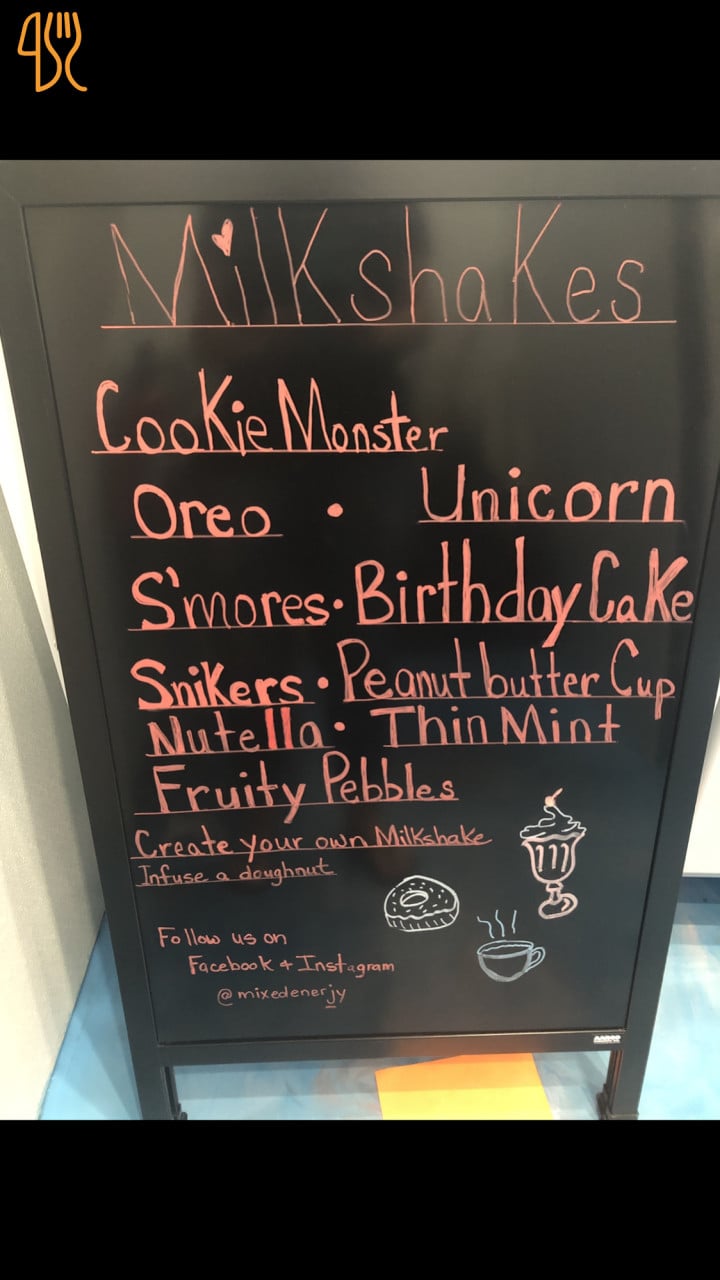 Milkshakes
Cookie Monster
Oreo • Unicorn
S'mores • Birthday Cake
Snikers • Peanut butter Cup
Nutella • Thin Mint
Fruity Pebbles
Create your own Milkshake
Infuse a doughnut
Follow us on
Facebook + Instagram
@mixedenerjy